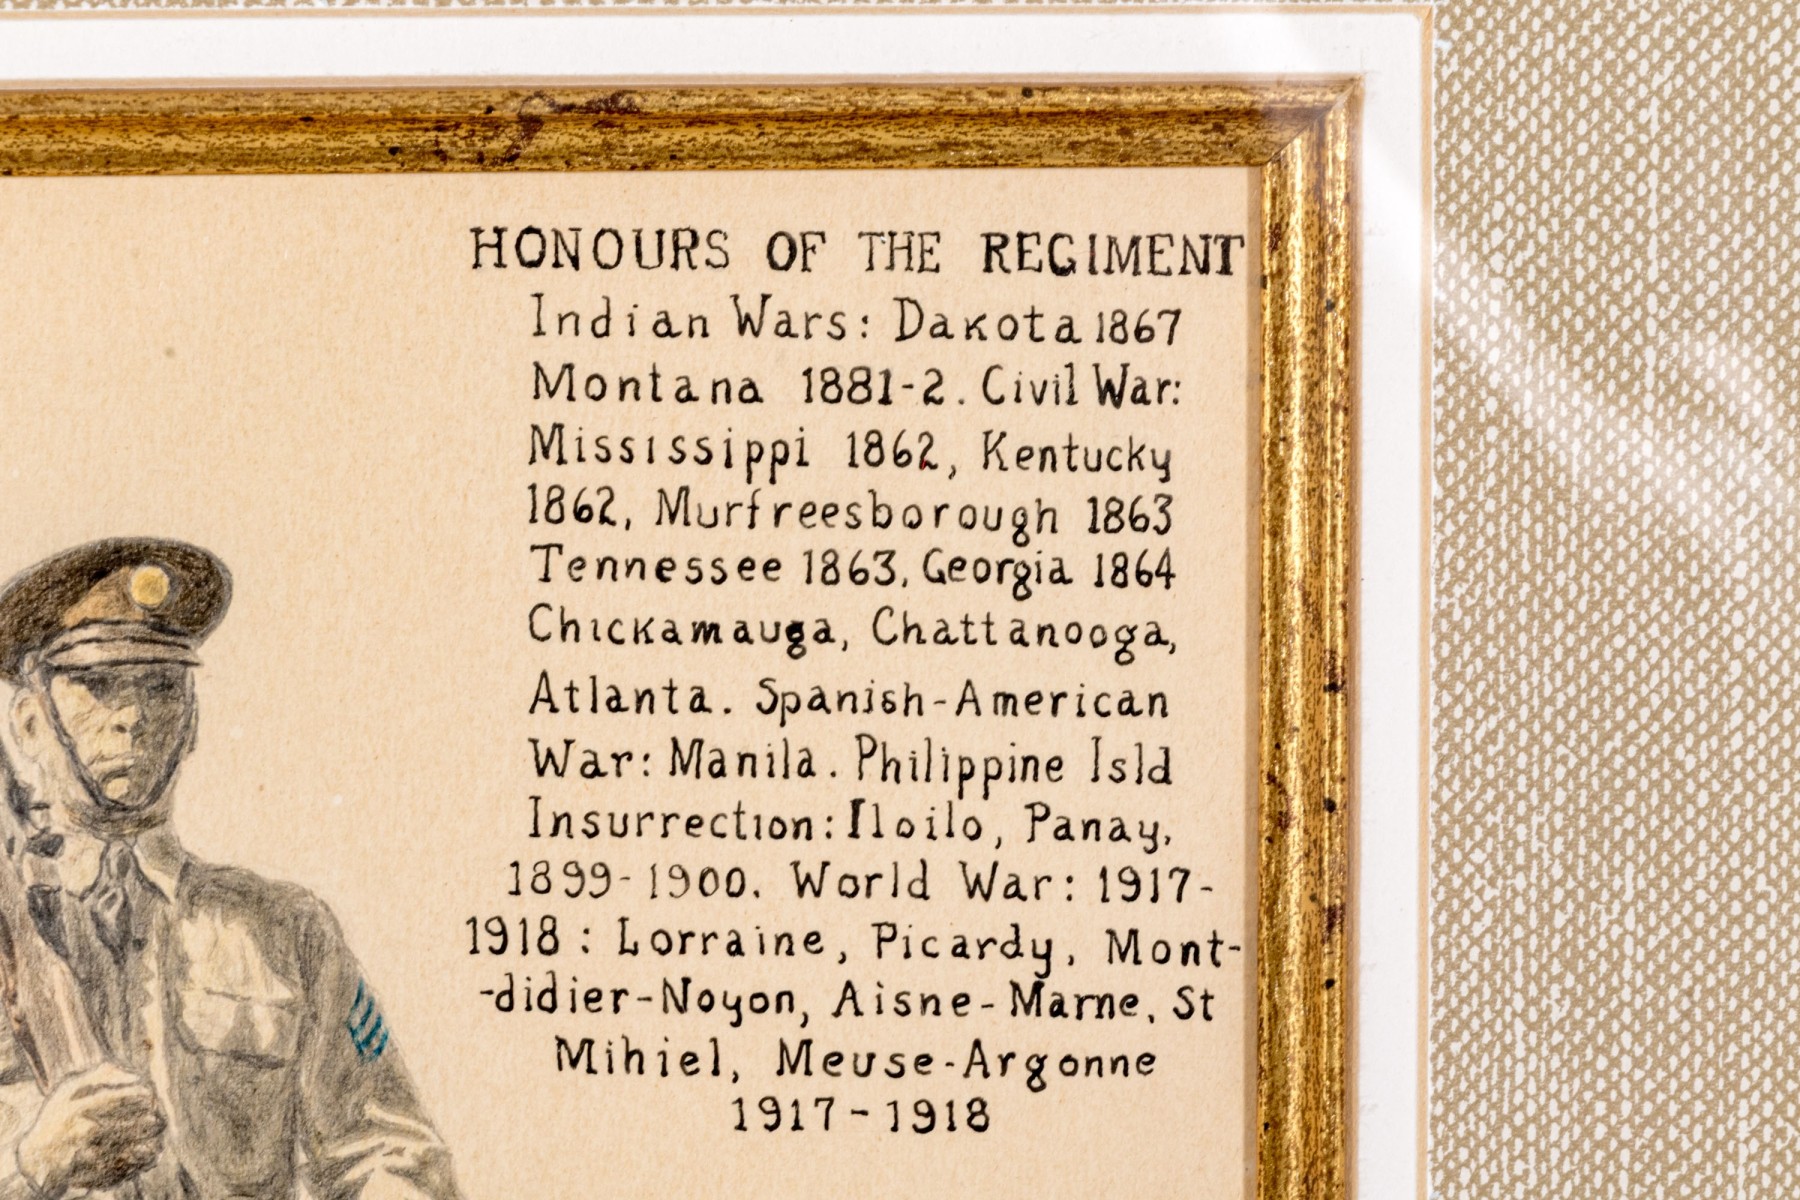 HONOURS OF THE REGIMENT
Indian Wars: Dakota 1867
Montana 1881-2. Civil War:
Mississippi 1862, Kentucky
1862, Murfreesborough 1863
Tennessee 1863, Georgia 1864
Chickamauga, Chattanooga,
Atlanta. Spanish-American
War: Manila. Philippine Isld
Insurrection: Iloilo, Panay,
1899-1900. World War: 1917-
1918 : Lorraine, Picardy, Mont-
-didier-Noyon, Aisne-Marne, St
Mihiel, Meuse-Argonne
1917-1918